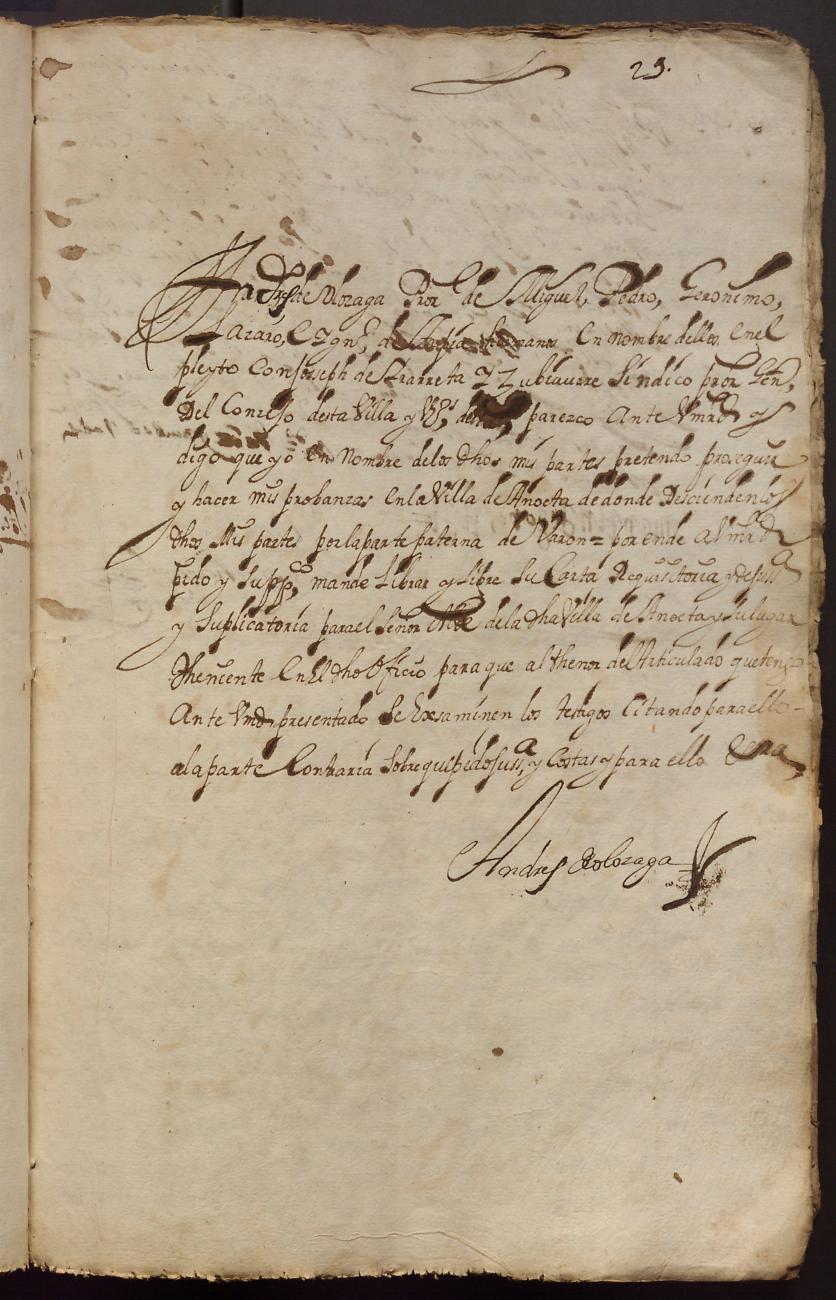 23.
Andres de Olozaga Pror de Miguel, Pedro, Geronimo,
Lazaro, E Ygnº, de Hermanos En nombre dellos En el
pleyto Con Joseph de Yrarreta y Zubiaurre Sindico pror Gen,
Del Concejo desta Villa y Vzs, della parezco Ante Vmrd y
digo que yo En Nombre de los dhos mis partes pretendo proseguir
y hacer mis probanzas En la Villa de Anoeta de donde Descienden los
dhos Mis partes por la parte paterna de Varon = por ende a Vmrd
pido y Suppco, mande Librar y libre Su Carta Requisitoria y de Jussa
y Suplicatoria para el Señor Alde de la dha Villa de Anoeta y Su lugar
theniente En El dho Officio para que al thenor del Articulado que tengo
Ante Vmd presentado Se Exsaminen los testigos Citando para ello
a la parte Contraria Sobre que pido Jussa, y Costas y para ello Ettra
Andres de olozaga